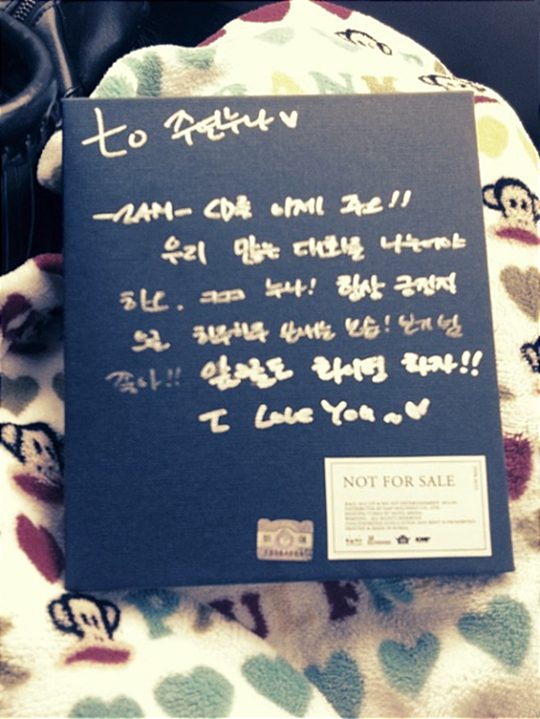 to 주연누나♥
-2AM- CD를 이제 주오!!
우리 많은 대화를 나누어야
하오. ㅋㅋㅋ 누나! 항상 긍정적
으로 하루하루 보내는 모습! 보기 넘
좋아!! 앞으로도 화이팅 하자!!
I Love You~♥
NOT FOR SALE